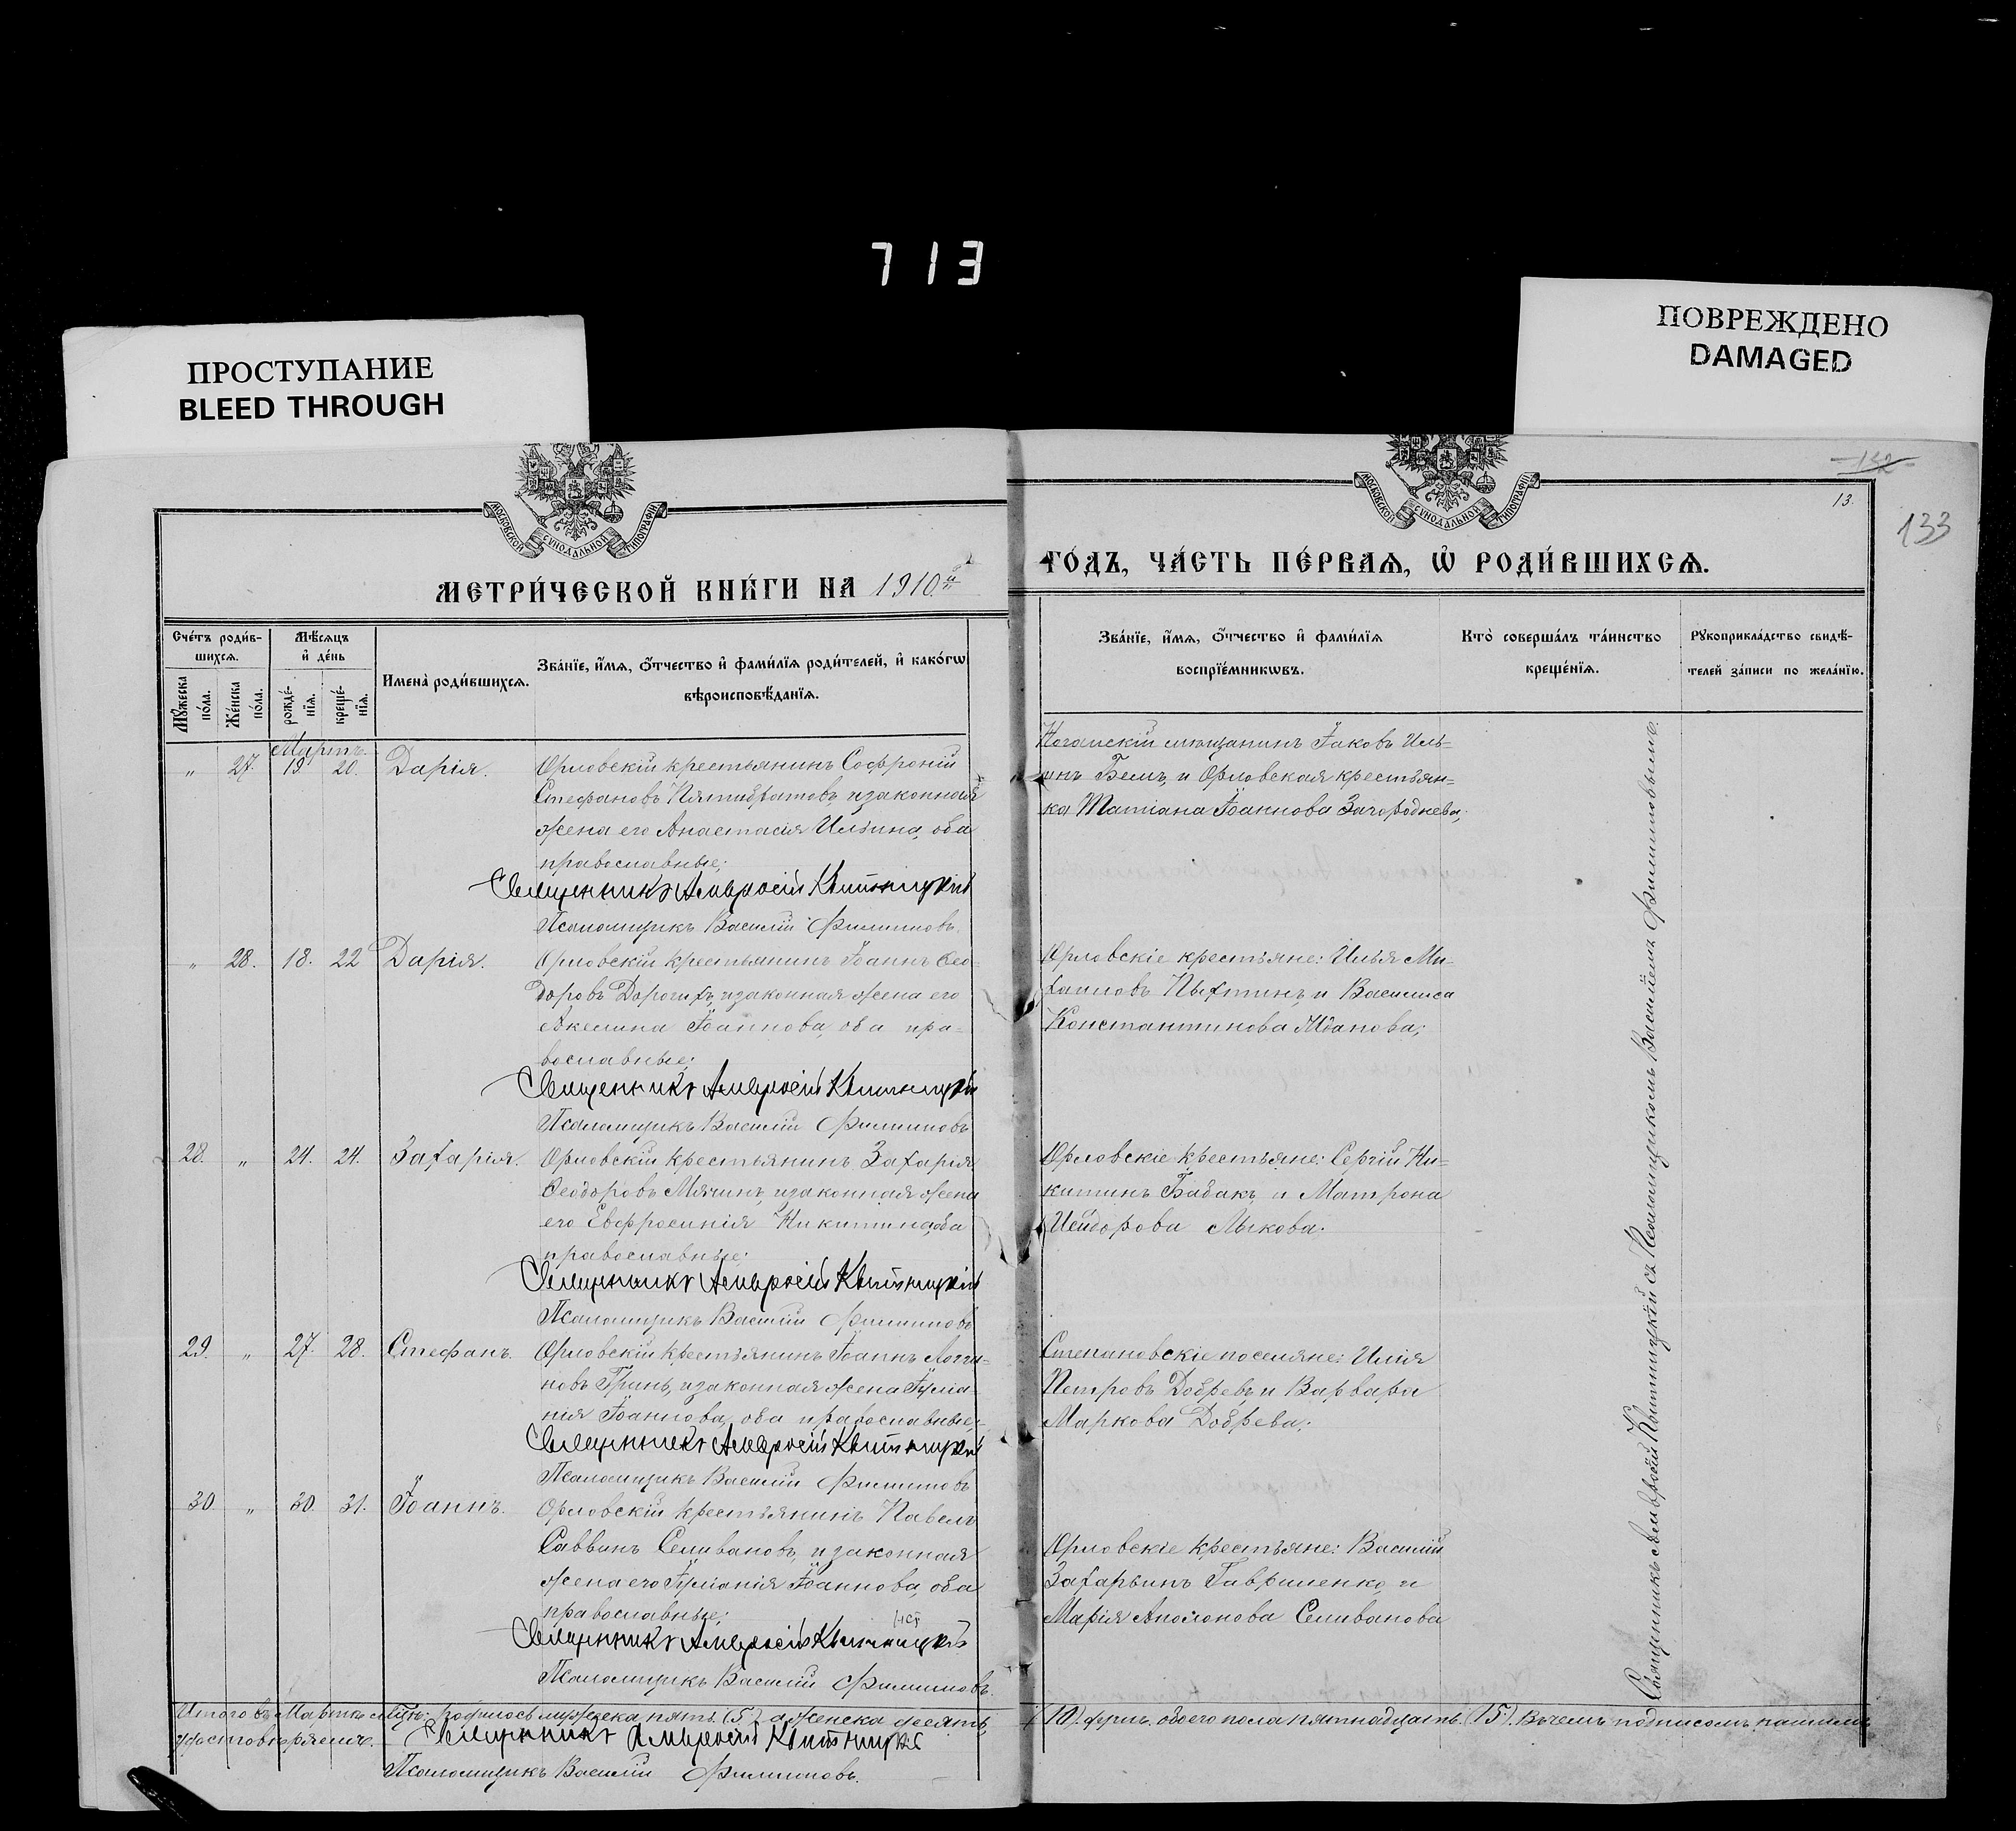 713
ПРОСТУПАНИЕ
BLEED THROUGH
ПОВРЕЖДЕНО
DAMAGED
МОСКОВСКОЙ СѴНОДАЛЬНОЙ ТИПОГРАФІИ
МОСКОВСКОЙ СѴНОДАЛЬНОЙ ТИПОГРАФІИ
132
13.
133
МЕТРИ́ЧЕСКОЙ КНИ́ГИ НА 1910й
ГО́ДЪ, ЧА́СТЬ ПЕ́РВАѦ, Ѡ҆ РОДИ́ВШИХСѦ.
Сче́тъ роди́вшихсѧ.
Мꙋ́жеска по́ла.
Же́нска по́ла.
Мѣ́сѧцъ и҆ де́нь
рожде́нїѧ.
креще́нїѧ.
И҆мена̀ роди́вшихсѧ.
Зва́нїе, и҆́мѧ, ѻ҆́тчество и҆ фами́лїѧ роди́телей, и҆ како́гѡ
вѣроисповѣ́данїѧ.
Зва́нїе, и҆́мѧ, ѻ҆́тчество и҆ фами́лїѧ
воспрїе́мникѡвъ.
Кто̀ соверша́лъ та́инство
креще́нїѧ.
Рꙋкоприкла́дство свидѣ́-
телей за́писи по жела́нїю.
Мартъ.
„ 27. 19 20. Дарія.
Орловскій крестьянинъ Софроній
Стефановъ Пятибратовъ, и законная
жена его Анастасія Ильина, оба
православные;
Священникъ Амвросій Квитницкій
Псаломщикъ Василій Филиповъ.
Ногайскій мещанинъ Іаковъ Иль-
инъ Бемъ, и Орловская крестьян-
ка Татіана Іоаннова Загороднева;
„ 28. 18. 22 Дарія.
Орловскій крестьянинъ Іоаннъ Ѳео-
доровъ и законная жена его
Акелина Іоаннова, оба пра-
вославные;
Священникъ Амвросій Квитницкій
Псаломщикъ Василій Филиповъ
Орловскіе крестьяне: Илья Ми-
хаиловъ Пыхтинъ, и Василиса
Константинова Жданова;
28. „ 21. 24. Захарія.
Орловскій крестьянинъ Захарія
Ѳеодоровъ Мячинъ, и законная жена
его Евфросинія Никитина, оба
православные;
Священникъ Амвросій Квитницкій
Псаломщикъ Василій Филиповъ
Орловскіе крестьяне: Сергій Ни-
китинъ Бабакъ, и Матрона
Исидорова Лыкова.
29. „ 27. 28. Стефанъ.
Орловскій крестьянинъ Іоаннъ Логги-
новъ Гринь, и законная жена Іулiа-
нія Іоаннова, оба православные;
Священникъ Амвросій Квитницкій
Псаломщикъ Василій Филиповъ
Степановскіе поселяне: Илія
Петровъ Добревъ, и Варвара
Маркова Добрева;
30. „ 30. 31. Іоаннъ.
Орловскій крестьянинъ Павелъ
Саввинъ Селивановъ, и законная
жена его Іуліанія Іоаннова, оба
православные;
Священникъ Амвросій Квитницкій
Псаломщикъ Василій Филиповъ.
Орловскіе крестьяне: Василій
Захарьинъ Гавриленко, и
Марія Аполонова Селиванова
Священникъ Амвросій Квитницкій съ Псаломщикомъ Василіемъ Филиповымъ.
Итого въ Мартѣ м-цѣ: родилось мужеска пять (5), а женска десять
(10). обоего пола пятнадцать (15). Въ чемъ подписомъ нашимъ
удостовѣряемъ. Священникъ Амвросій Квитницкій
Псаломщикъ Василій Филиповъ.